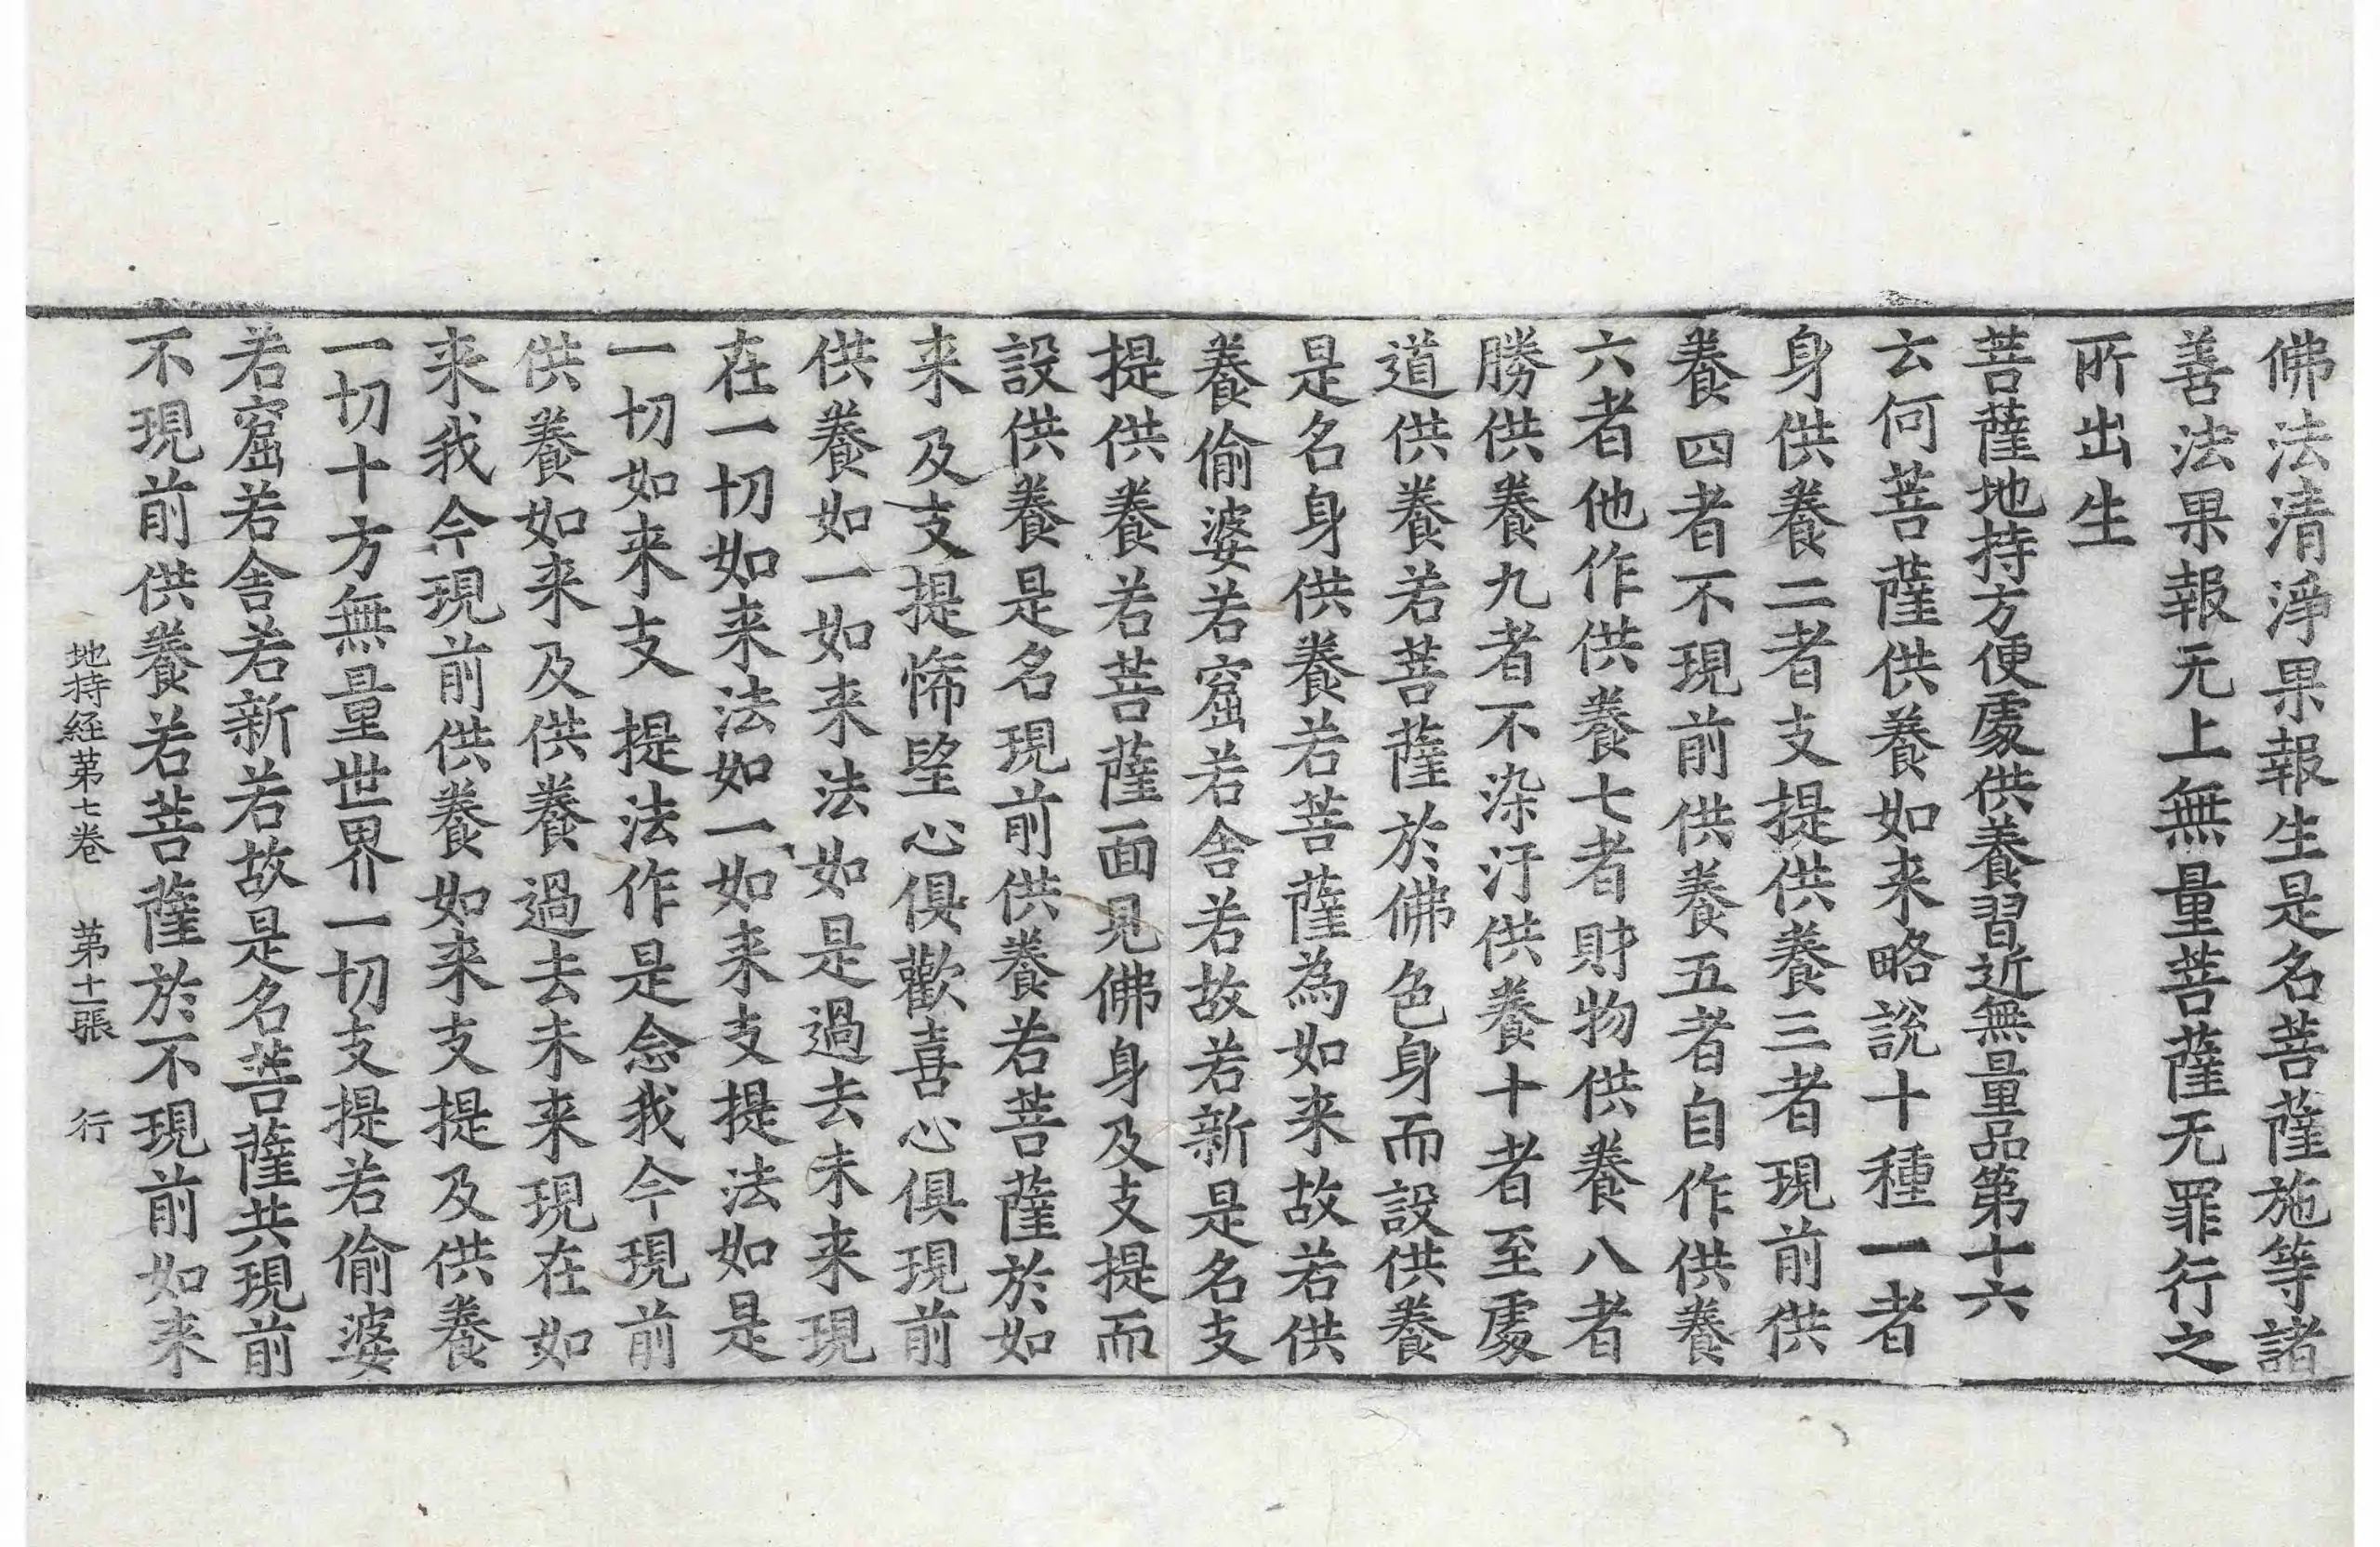 佛法清淨果報生是名菩薩施等諸
善法果報无上無量菩薩无罪行之
所出生
菩薩地持方便處供養習近無量品第十六
云何菩薩供養如来略說十種一者
身供養二者支提供養三者現前供
養四者不現前供養五者自作供養
六者他作供養七者財物供養八者
勝供養九者不染汙供養十者至處
道供養若菩薩於佛色身而設供養
是名身供養若菩薩為如来故若供
養偷婆若窟若舍若故若新是名支
提供養若菩薩面見佛身及支提而
設供養是名現前供養若菩薩於如
来及支提悕望心俱歡喜心俱現前
供養如一如来法如是過去未来現
在一切如来法如一如来支提法如是
一切如来支提法作是念我今現前
供養如来及供養過去未来現在如
来我今現前供養如来支提及供養
一切十方無量世界一切支提若偷婆
若窟若舍若新若故是名菩薩共現前
不現前供養若菩薩於不現前如来
地持経苐七卷 苐十二張 行